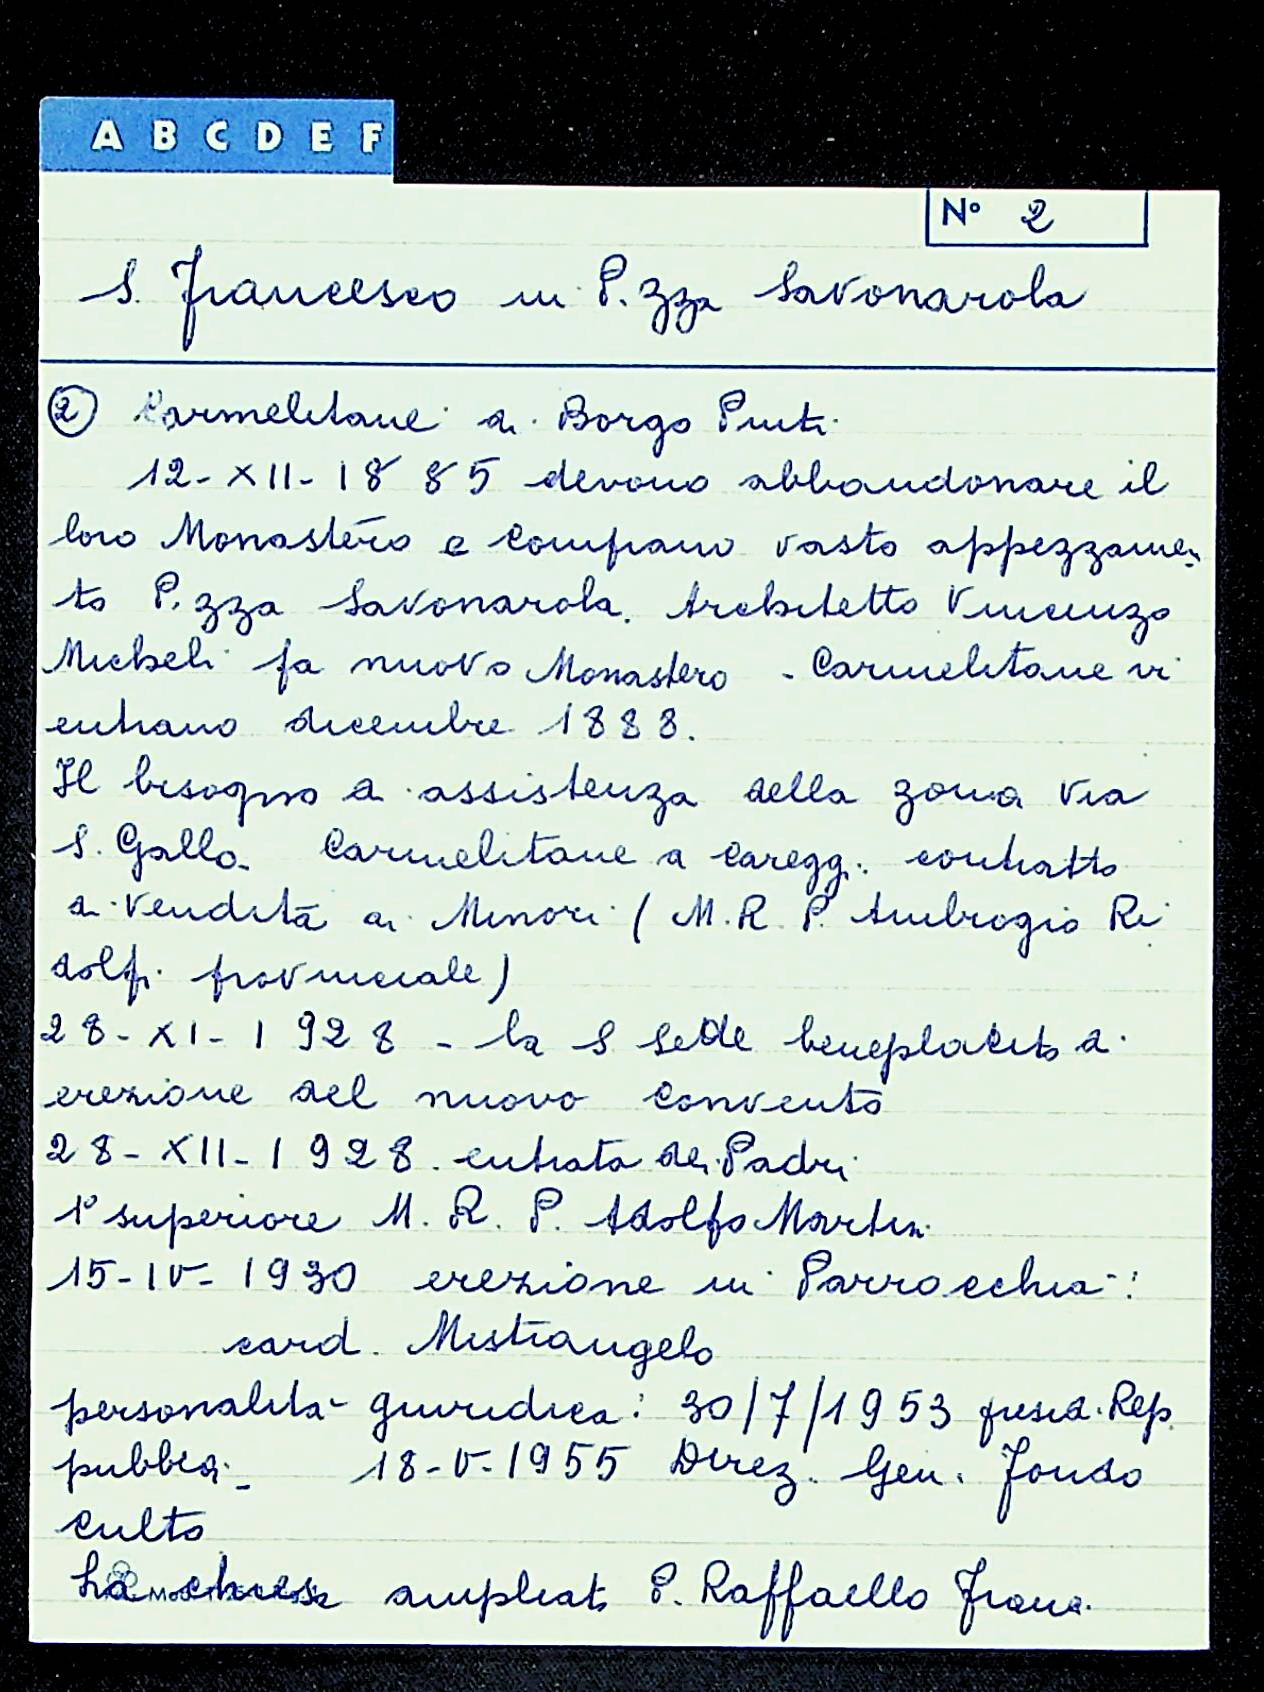 A B C D E F
N° 2
S. Francesco in P.zza Savonarola
② Carmelitane di Borgo Pinti
12-XII-1885 devono abbandonare il
loro Monastero e comprano vasto appezzamen-
to P.zza Savonarola. Architetto Vincenzo
Micheli fa nuovo Monastero - Carmelitane vi
entrano dicembre 1888.
Il bisogno di assistenza della zona via
S. Gallo. Carmelitane a Careggi. contratto
di vendita ai Minori (M.R.P. Ambrogio Ri
dolfi provinciale)
28-XI-1928 - la S Sede beneplacito di
erezione del nuovo convento
28-XII-1928. entrata dei Padri
1° superiore M. R. P. Adolfo Martini
15-IV-1930 erezione in Parrocchia:
card. Mistrangelo
personalità giuridica: 30/7/1953 presid. Rep.
pubbli. - 18-V-1955 Direz. Gen. Fondo
culto
ha chiesa ampliato P. Raffaello Franc.